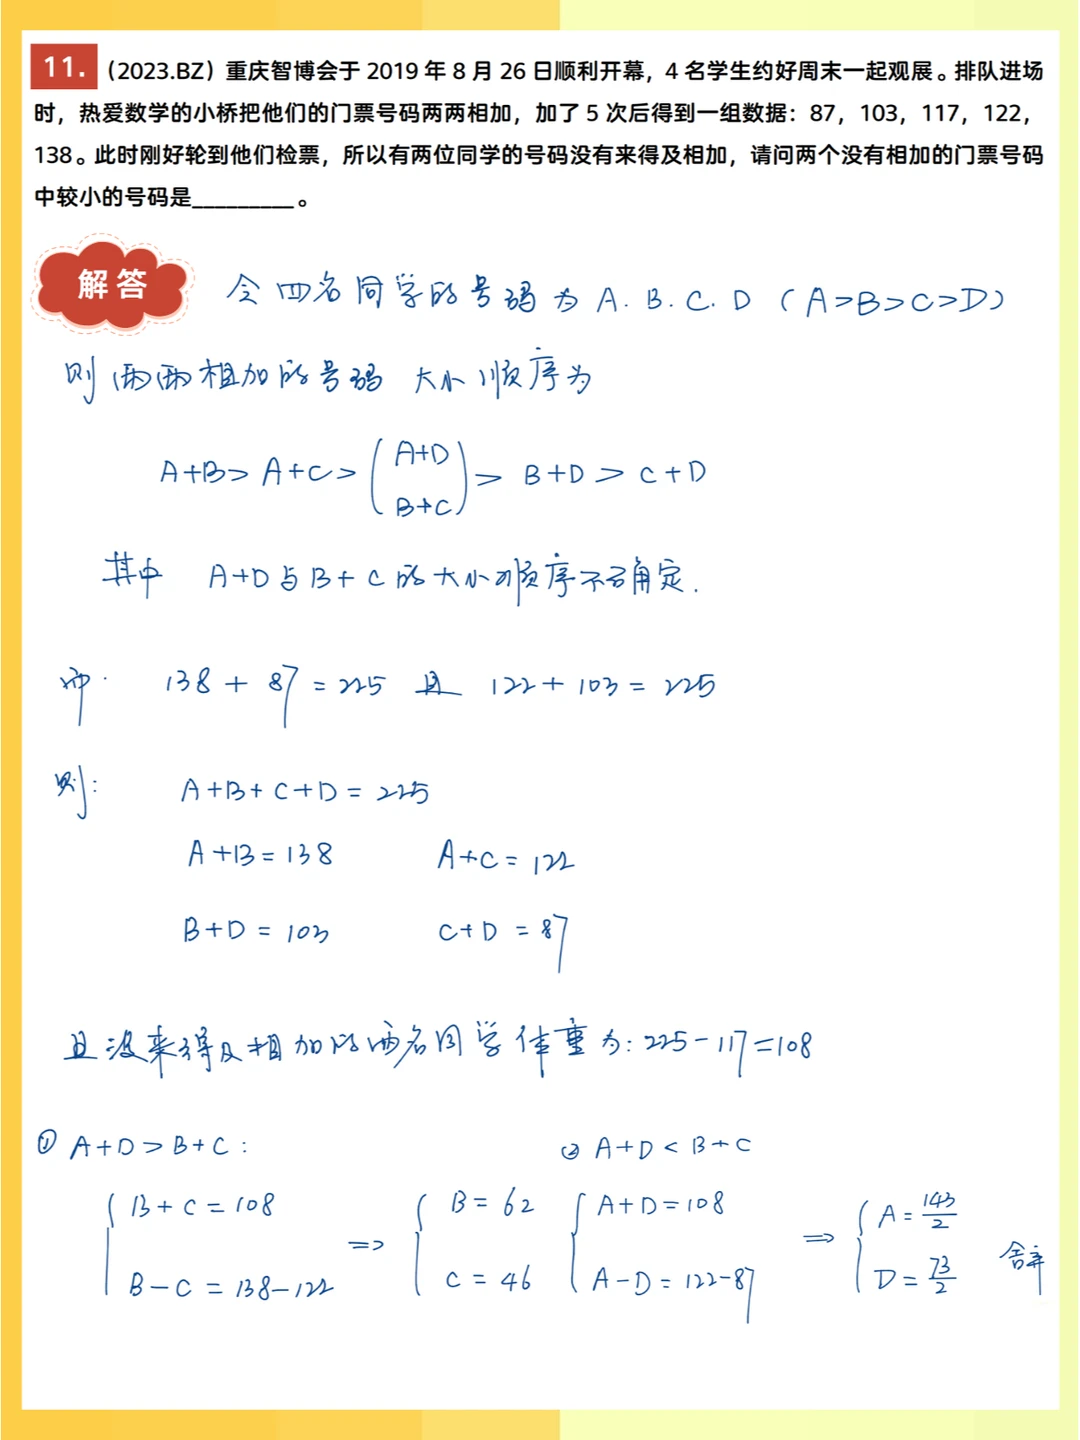 11. （2023.BZ）重庆智博会于 2019 年 8 月 26 日顺利开幕，4 名学生约好周末一起观展。排队进场
时，热爱数学的小桥把他们的门票号码两两相加，加了 5 次后得到一组数据：87，103，117，122，
138。此时刚好轮到他们检票，所以有两位同学的号码没有来得及相加，请问两个没有相加的门票号码
中较小的号码是_________。
解答
令四名同学的号码为 A. B. C. D （A>B>C>D）
则两两相加的号码 大小顺序为
A+B> A+C> (A+D
B+C) > B+D > C+D
其中 A+D与B+C的大小顺序不确定.
而. 138 + 87 = 225 且 122 + 103 = 225
则: A+B+C+D = 225
A+B = 138 A+C = 122
B+D = 103 C+D = 87
且没来得及相加的两名同学体重为: 225-117=108
① A+D > B+C : ② A+D < B+C
{ B+C = 108 { B = 62 { A+D = 108 { A = 143/2
⇒ ⇒ 舍弃
B-C = 138-122 C = 46 A-D = 122-87 D = 73/2